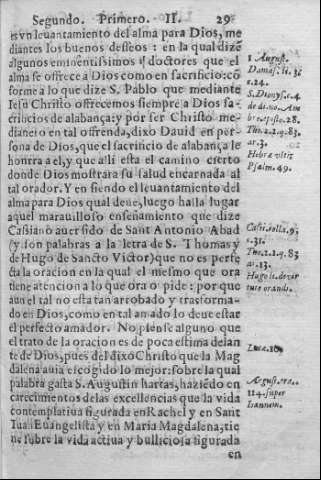 Segundo. Primero. II. 29
es vn leuantamiento del alma para Dios, me
diantes los buenos desseos : en la qual dizẽ
algunos eminentissimos doctores que el
alma se offrece a Dios como en sacrificio: cõ
forme a lo que dize S. Pablo que mediante
Iesu Christo offrecemos siempre a Dios sa
crificios de alabança: y por ser Christo me-
dianero en tal offrenda, dixo Dauid en per-
sona de Dios, que el sacrificio de alabança le
honrra a el, y que alli esta el camino cierto
donde Dios mostrara su salud encarnada al
tal orador. Y en siendo el leuantamiento del
alma para Dios qual deue, luego halla lugar
aquel marauilloso enseñamiento que dize
Cassiano auer sido de Sant Antonio Abad
(y son palabras a la letra de S. Thomas y
de Hugo de Sancto Victor) que no es perfe
cta la oracion en la qual el mesmo que ora
tiene atencion a lo que ora o pide : por que
aun el tal no esta tan arrobado y trasforma-
do en Dios, como en tal amado lo deue estar
el perfecto amador. No piense alguno que
el trato de la oracion es de poca estima delan
te de Dios, pues del dixo Christo que la Mag
dalena auia escogido lo mejor: sobre la qual
palabra gasta S. Augustin hartas, haziẽdo en
carecimentos de las excellencias que la vida
contemplatiua figurada en Rachel y en Sant
Iuan Euangelista y en Maria Magdalena, tie
ne sobre la vida actiua y bulliciosa figurada
en
1 August.
Damas. li. 3.
c. 24.
S. Dionys. c. 4
Tho. 2. 2. q. 83.
ar. 3.
Hebre. vltis
Psalm. 49.
Cassi. colla. 9.
c. 31.
Tho. 2. 2. q. 83
ar. 13.
Hugo li. de vir
tute orandi.
Luca. 10.
August.
114. super
Ioannem.